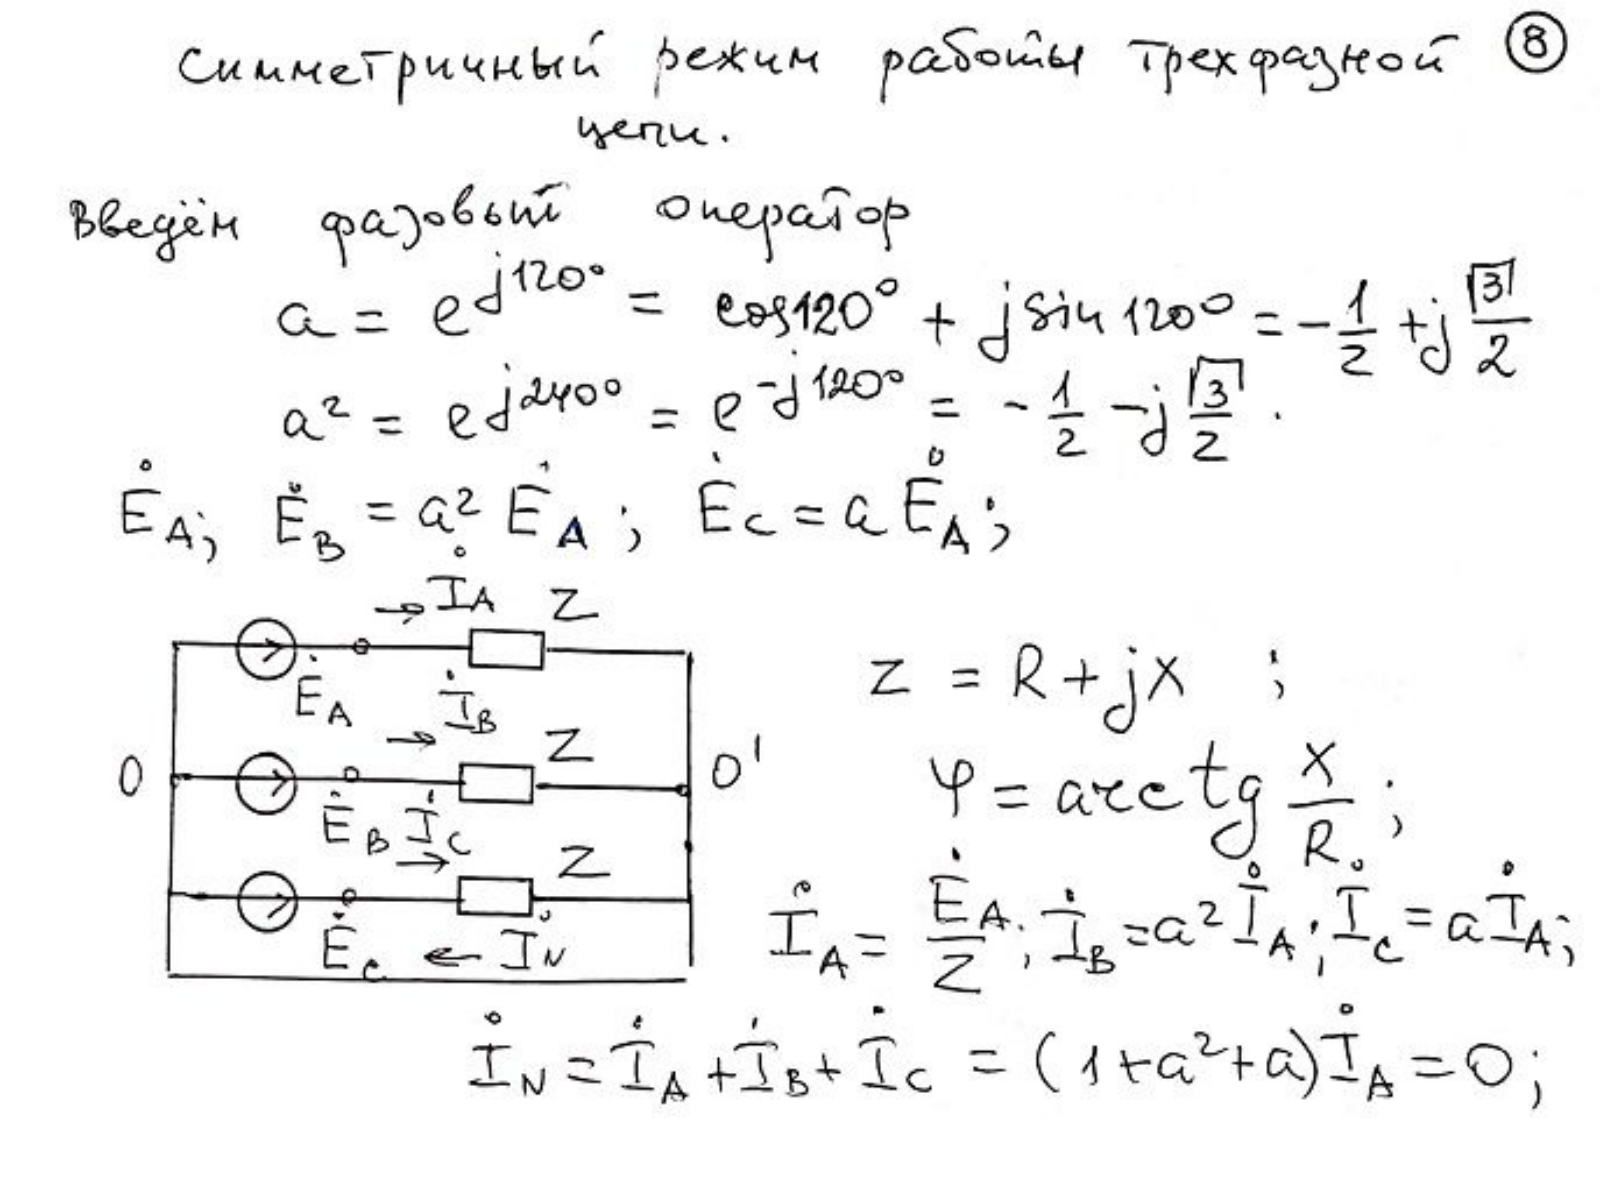 Симметричный режим работы трехфазной ⑧
цепи.
Введём фазовый оператор
a = e^{j120°} = cos120° + j sin 120° = -1/2 + j √3/2
a² = e^{j240°} = e^{-j120°} = -1/2 - j √3/2 .
Ė_A; Ė_B = a² Ė_A ; Ė_C = a Ė_A ;
İ_A Z
Ė_A İ_B
Z = R + jX ;
0 Z 0'
φ = arctg X/R ;
Ė_B İ_C Z
Ė_C İ_N
İ_A = Ė_A/Z ; İ_B = a² İ_A ; İ_C = a İ_A ;
İ_N = İ_A + İ_B + İ_C = (1+a²+a) İ_A = 0 ;